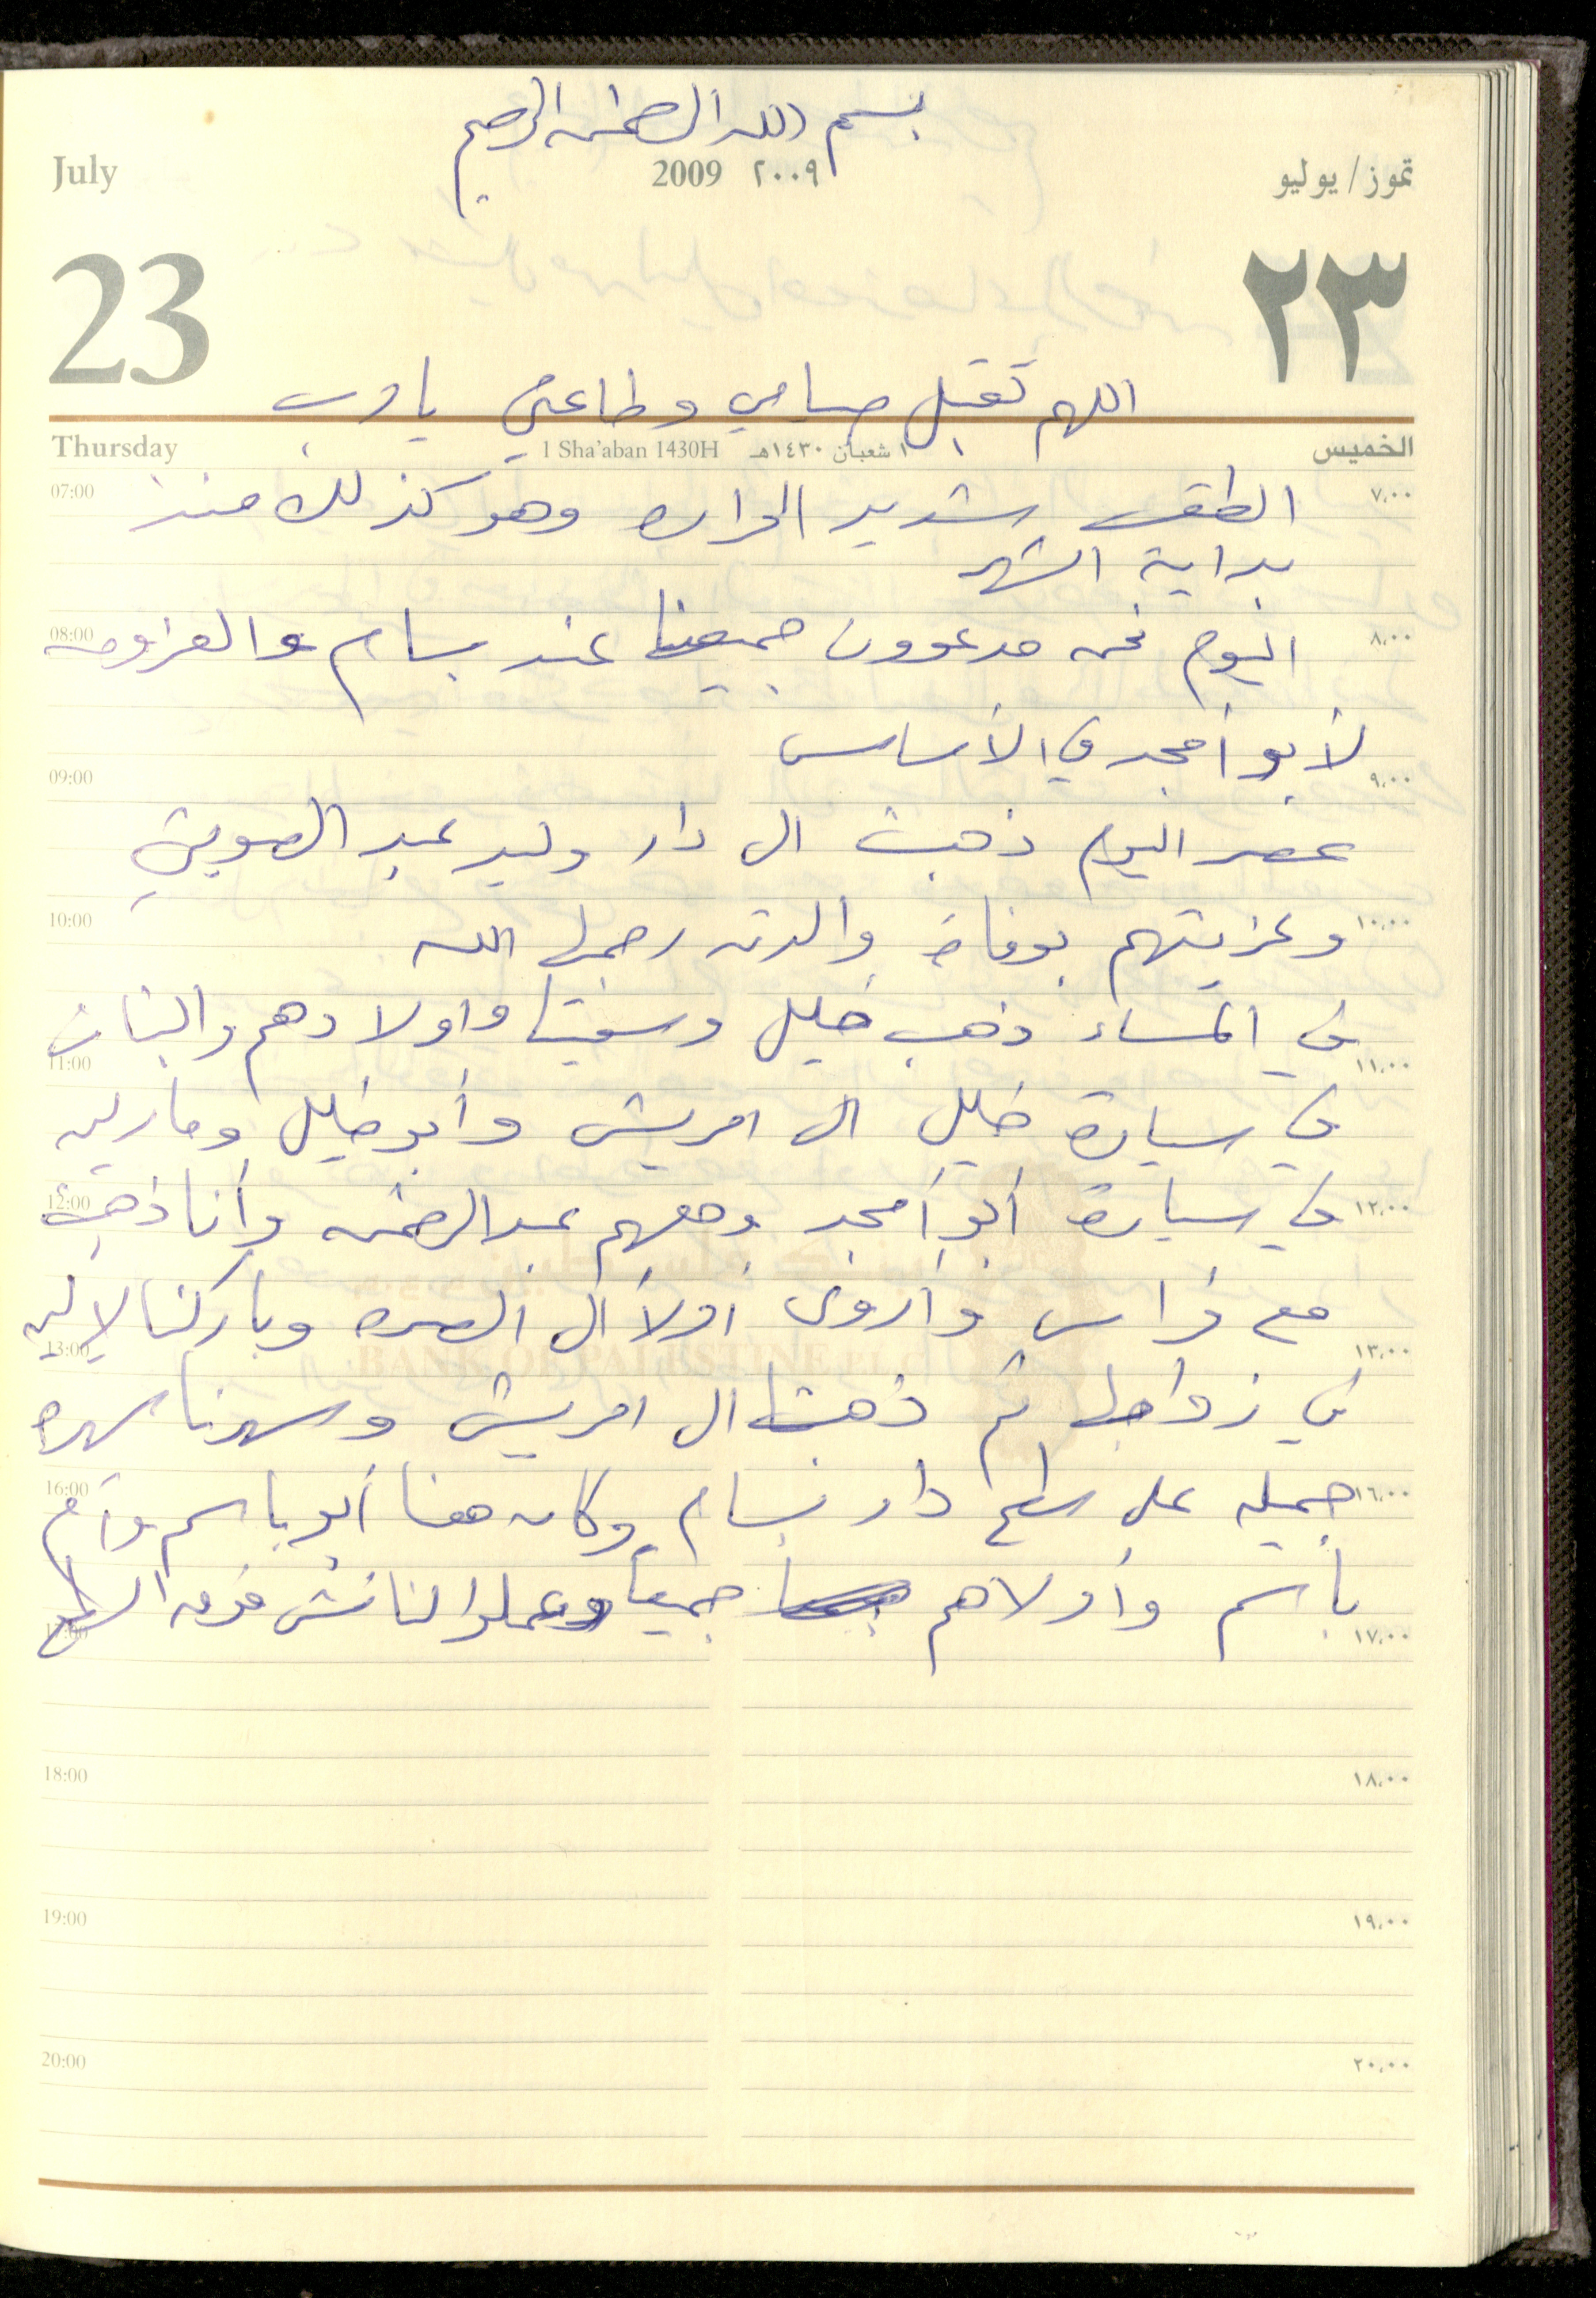 بسم الله الرحمن الرحيم
July 2009 ٢٠٠٩ تموز/يوليو
23 ٢٣
اللهم تقبل صيامي وطاعتي يا رب
Thursday 1 Sha'aban 1430H ١ شعبان ١٤٣٠هـ الخميس
07:00 الطقس شديد الحراره وهو كذلك منذ ٧,٠٠
بداية الشهر
08:00 اليوم نحن مدعوون جميعنا عند بسام والعزومه ٨,٠٠
لأبو أمجد في الأساس
09:00 ٩,٠٠
عصر اليوم ذهبت الى دار وليد عبد
10:00 وعزيتهم بوفاة والدته رحمها الله ١٠,٠٠
في المساء ذهب خليل وأولادهم والبنات
11:00 ١١,٠٠
في سيارة خليل الى امريش وأبو خليل
12:00 في سيارة أبو أمجد ومعهم عبد الرحمن وأنا ذهبت ١٢,٠٠
مع فراس وأروى اولا الى وباركنا
13:00 BANK OF PALESTINE PLC ١٣,٠٠
في زواجها ثم ذهبنا الى امريش وسهرنا سهره
16:00 جميله على سطح دار بسام وكان هنا أبو باسم وأم ١٦,٠٠
باسم وأولاهم جميعا وعملوا لنا فوق السطح
17:00 ١٧,٠٠
18:00 ١٨,٠٠
19:00 ١٩,٠٠
20:00 ٢٠,٠٠